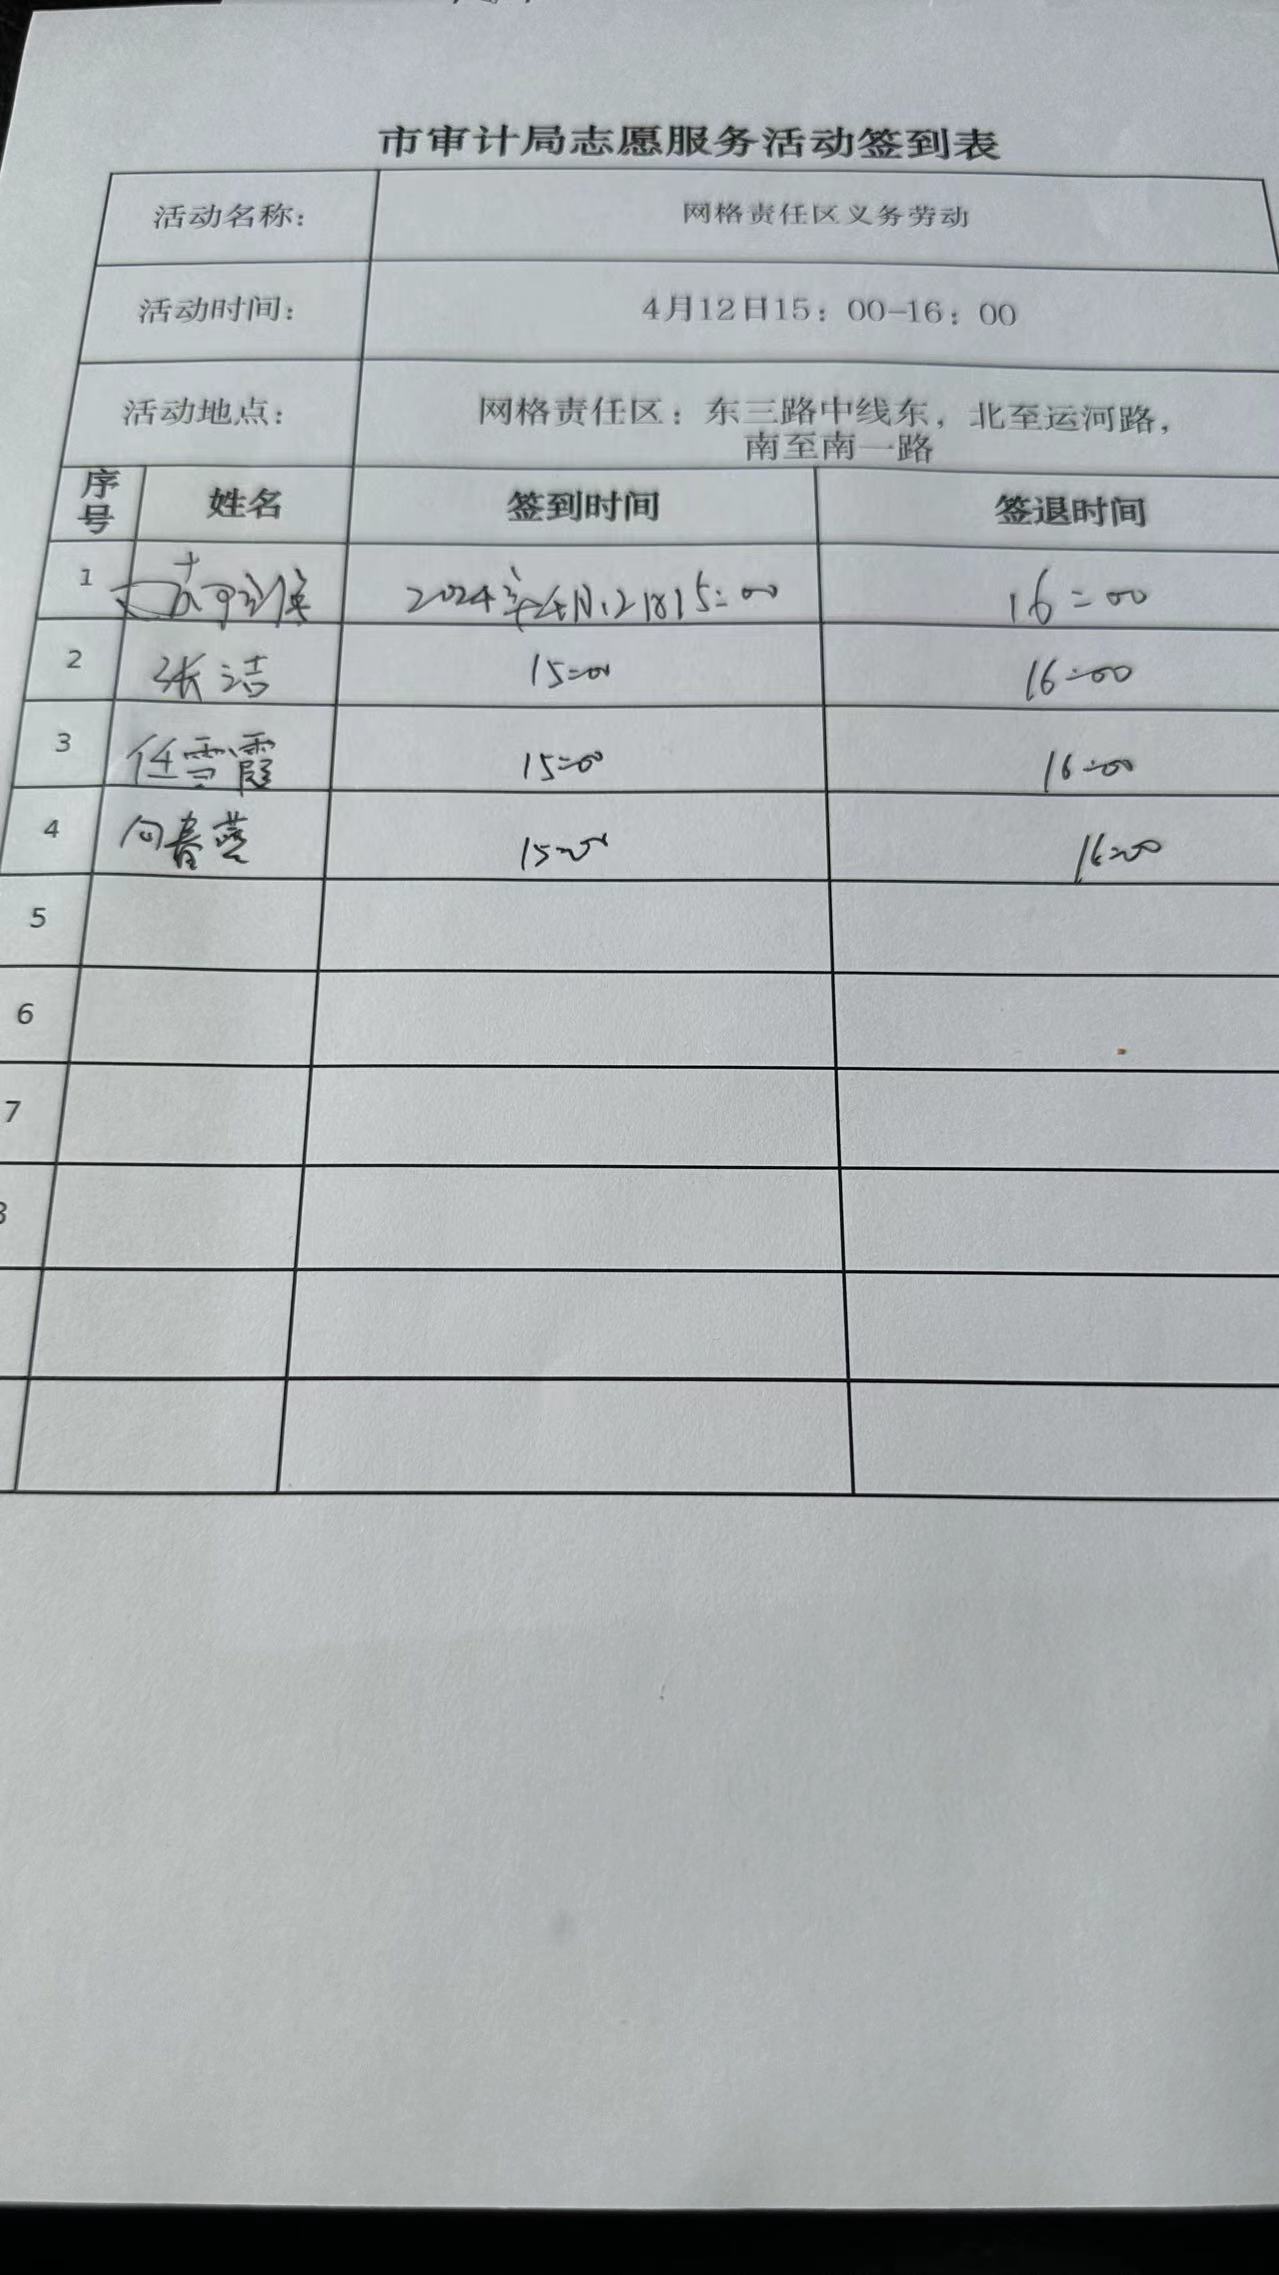 市审计局志愿服务活动签到表
活动名称: 网格责任区义务劳动
活动时间: 4月12日15：00-16：00
活动地点: 网格责任区：东三路中线东，北至运河路，
南至南一路
序号 姓名 签到时间 签退时间
1 2024年4月12日15:00 16:00
2 张洁 15:00 16:00
3 任雪霞 15:00 16:00
4 向春莹 15:00 16:00
5
6
7
8